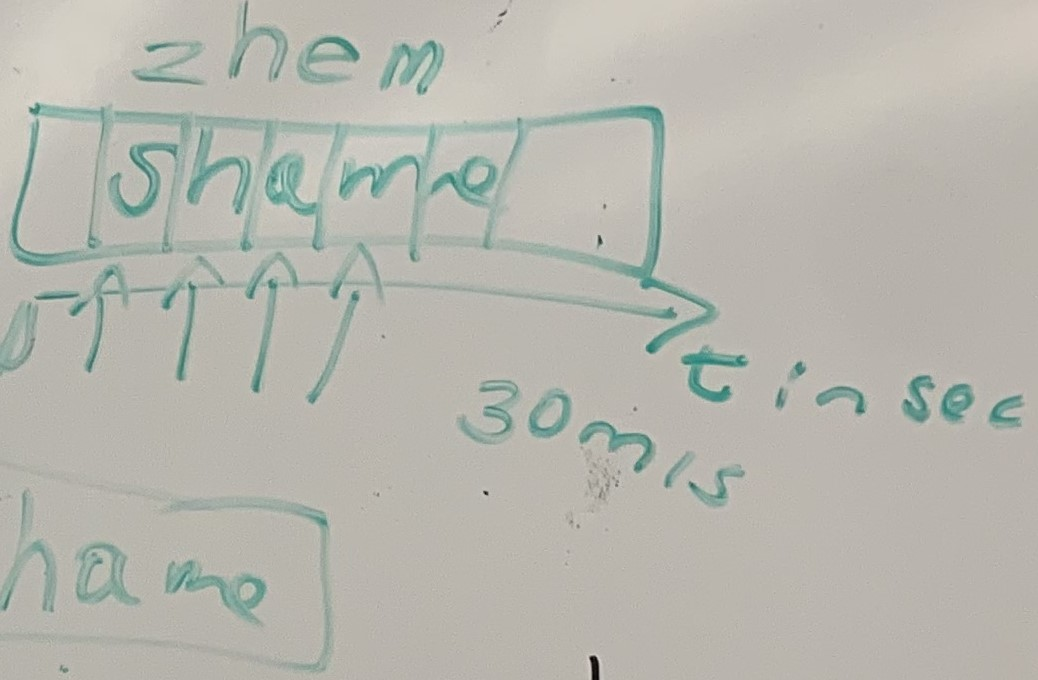 zhem
shame
0
t in sec
30m/s
hame